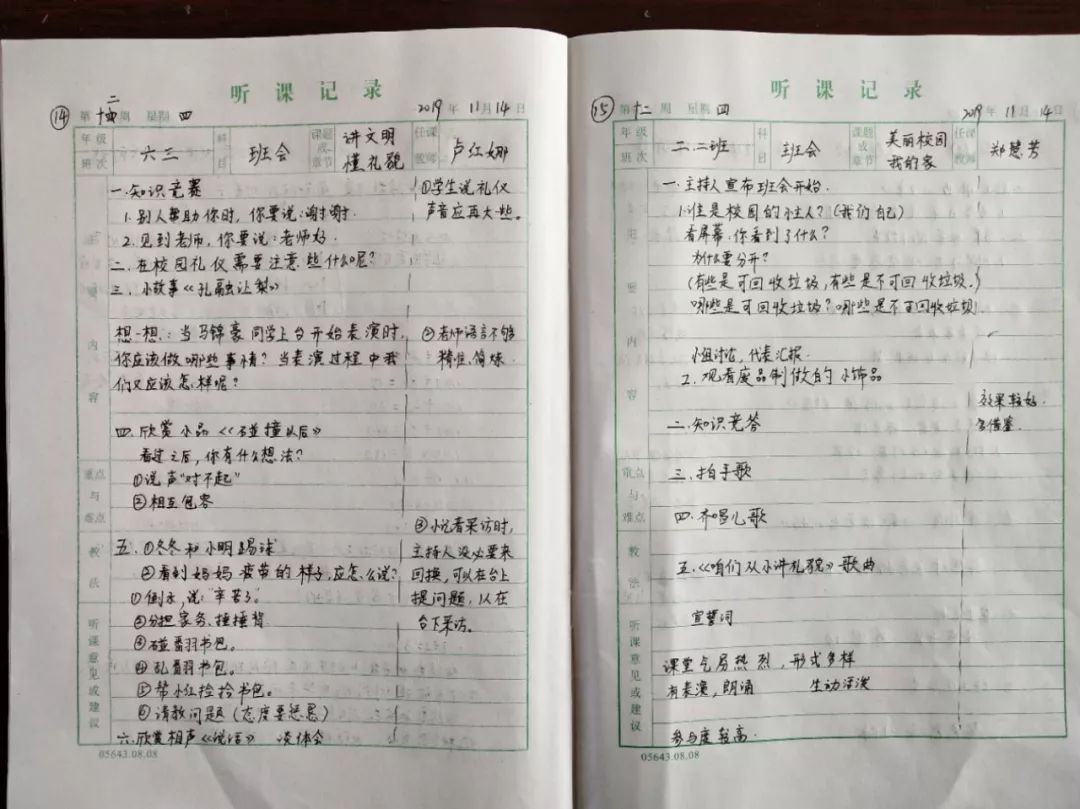 听课记录
⑭ 第十二周 星期四 2019年11月14日
年级班次 六三 科目 班会 课题或章节 讲文明懂礼貌 任课教师 卢红娜
主要内容
一.知识竞赛
1.别人帮助你时,你要说:谢谢.
2.见到老师,你要说:老师好.
二.在校园礼仪需要注意些什么呢?
三.小故事《孔融让梨》
想一想:当马锦豪同学上台开始表演时,
你应该做哪些事情?当表演过程中我
们又应该怎样呢?
四.欣赏小品《碰撞以后》
看过之后,你有什么想法?
①说声"对不起"
②相互包容
五.①冬冬和小明踢球
②看到妈妈疲劳的样子,应怎么说?
①倒水,说:"辛苦了."
②分担家务、捶捶背
③碰翻书包。
④乱翻书包。
⑤帮小红捡拾书包。
⑥请教问题(态度要恳恳)
六.欣赏相声《说话》 谈体会
①学生说礼仪
声音应再大些。
②老师语言不够
精准、简炼.
③小记者采访时,
主持人没必要来
回换,可以在台上
提问题,以在
台下采访。
重点与难点
教法
听课意见或建议
05643.08.08
听课记录
⑮ 第十二周 星期四 2019年11月14日
年级班次 二.二班 科目 班会 课题或章节 美丽校园我的家 任课教师 郑慧芳
主要内容
一.主持人宣布班会开始.
1.谁是校园的小主人?(我们自己)
看屏幕:你看到了什么?
为什么要分开?
(有些是可回收垃圾,有些是不可回收垃圾.)
哪些是可回收垃圾?哪些是不可回收垃圾.
小组讨论,代表汇报.
2.观看废品制做的小饰品
二.知识竞答
三.拍手歌
四.齐唱儿歌
五.《咱们从小讲礼貌》歌曲
宣誓词
课堂气局热烈,形式多样
有表演,朗诵 生动活泼
参与度较高.
效果较好.
可借鉴.
重点与难点
教法
听课意见或建议
05643.08.08